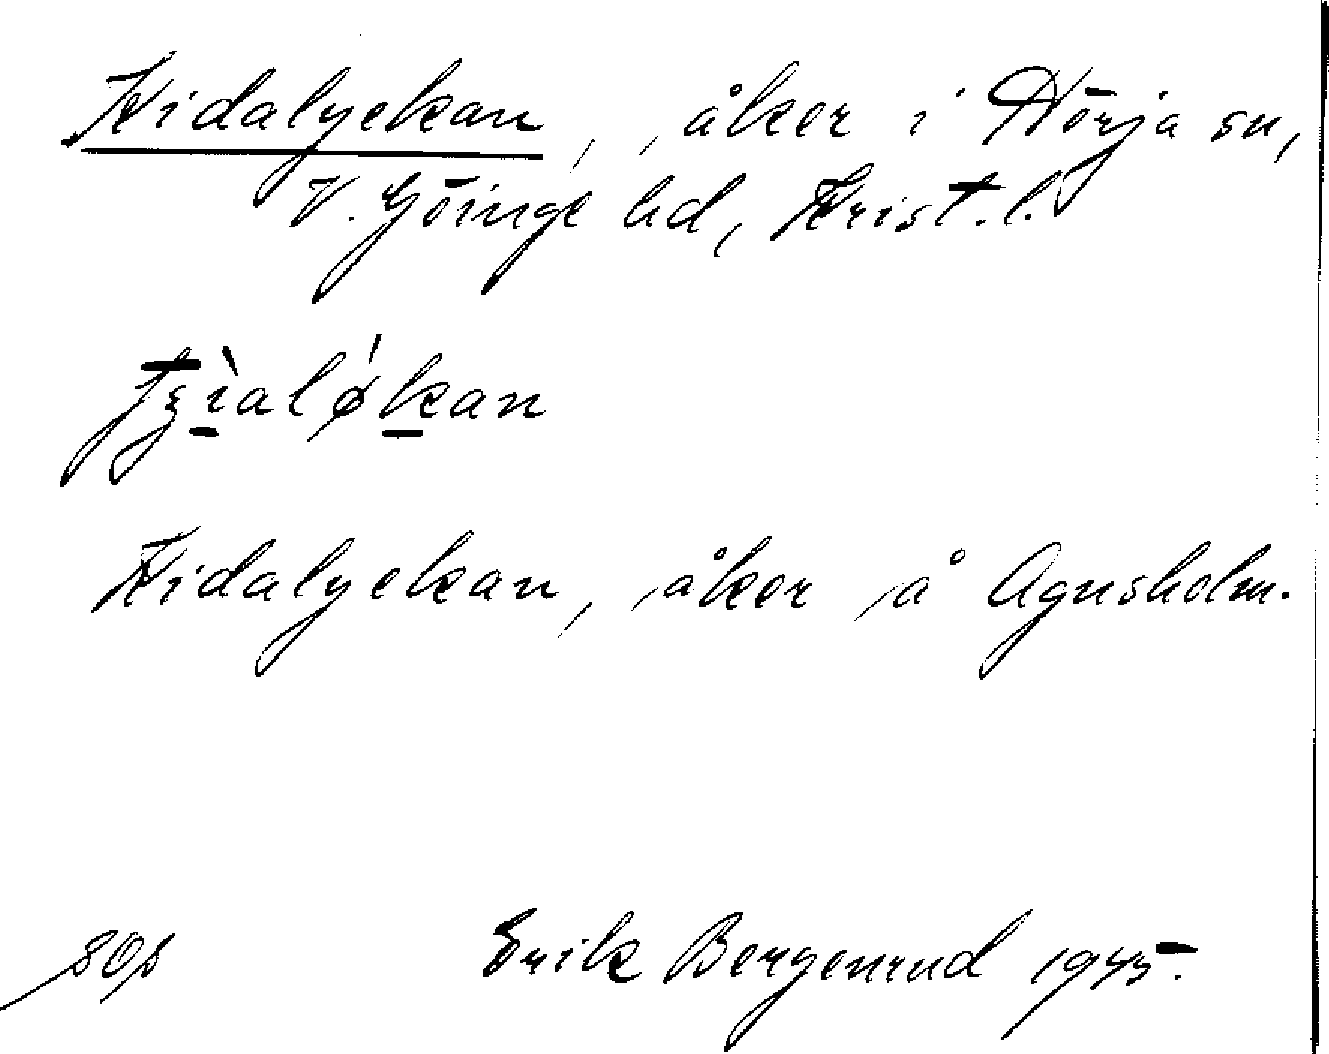 Kidalyckan, åker i Nörja sn,
V. Göinge hd, Krist. l.
Kidalyckan, åker å Agnsholm.
Erik Bergenrud 1945.